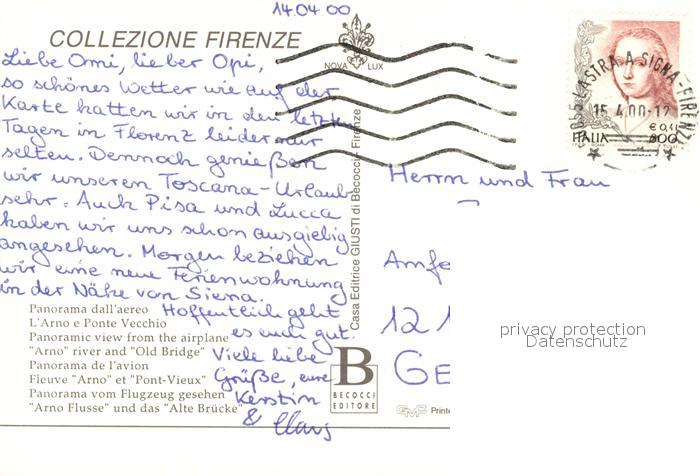 14.04.00
COLLEZIONE FIRENZE
NOVA LUX
Liebe Omi, lieber Opi,
so schönes Wetter wie auf der
Karte hatten wir in den letzten
Tagen in Florenz leider nur
selten. Dennoch genießen
wir unseren Toscana-Urlaub
sehr. Auch Pisa und Lucca
haben wir uns schon ausgiebig
angesehen. Morgen beziehen
wir eine neue Ferienwohnung
in der Nähe von Siena.
Hoffentlich geht
es euch gut.
Viele liebe
Grüße, eure
Kerstin
& Claus
Panorama dall'aereo
L'Arno e Ponte Vecchio
Panoramic view from the airplane
"Arno" river and "Old Bridge"
Panorama de l'avion
Fleuve "Arno" et "Pont-Vieux"
Panorama vom Flugzeug gesehen
"Arno Flusse" und das "Alte Brücke"
Casa Editrice GIUSTI di Becocci - Firenze
B
BECOCCI
EDITORE
LASTRA A SIGNA - FIRENZE
15.4.00-12
€ 0,41
ITALIA 800
Herrn und Frau
Amfo
12 1
GE
GMC Printe
privacy protection
Datenschutz